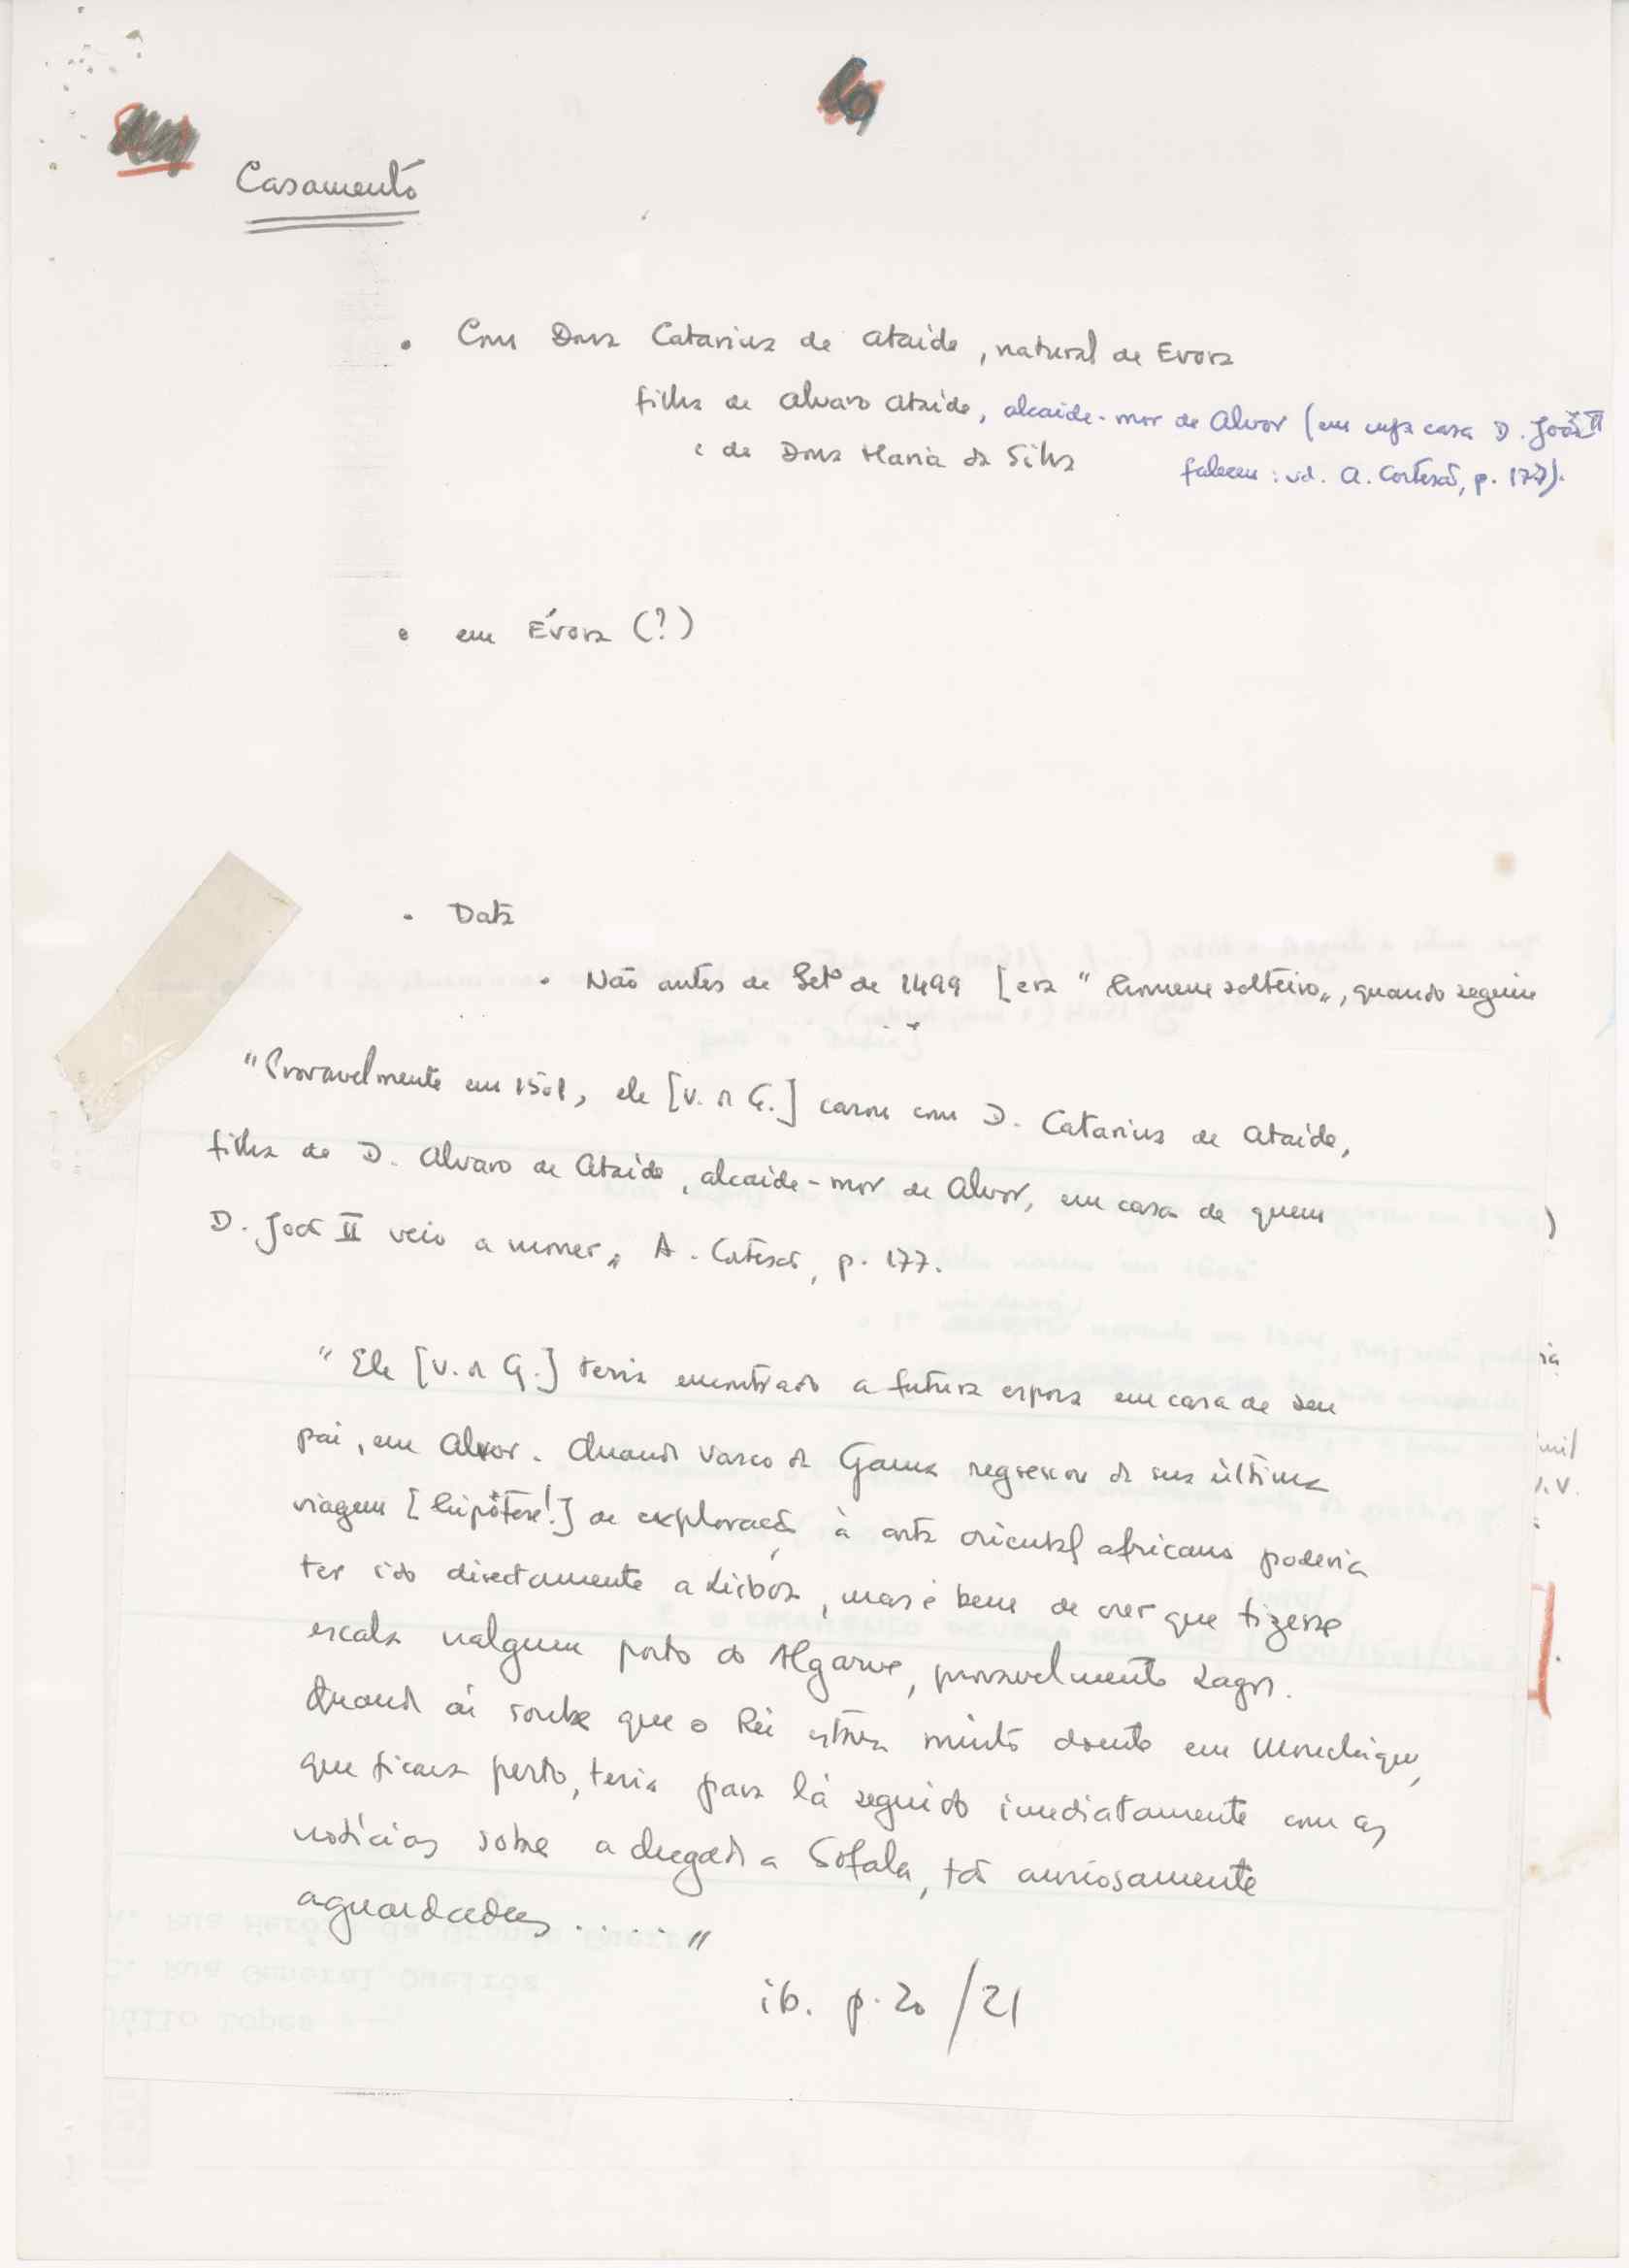 Casamento
• Com Dona Catarina de Ataide, natural de Evora
filha de Alvaro Ataide, alcaide-mor de Alvor (em cuja casa D. João II
e de Dona Maria da Silva faleceu: vid. A. Cortesão, p. 177).
• em Évora (?)
• Data
• Não antes de Setº de 1499 [era "homem solteiro", quando seguiu
"Provavelmente em 1501, ele [V. da G.] casou com D. Catarina de Ataide,
filha de D. Alvaro de Ataide, alcaide-mor de Alvor, em casa de quem
D. João II veio a morrer" A. Cortesão, p. 177.
"Ele [V. da G.] teria encontrado a futura esposa em casa de seu
pai, em Alvor. Quando Vasco da Gama regressou da sua última
viagem [hipótese!] de exploração à costa oriental africana poderia
ter ido directamente a Lisboa, mas é bem de crer que fizesse
escala nalgum porto do Algarve, provavelmente Lagos.
Quando aí soube que o Rei estava muito doente em Monchique,
que ficava perto, teria para lá seguido imediatamente com as
notícias sobre a chegada a Sofala, tão ansiosamente
aguardadas ....."
ib. p. 20/21